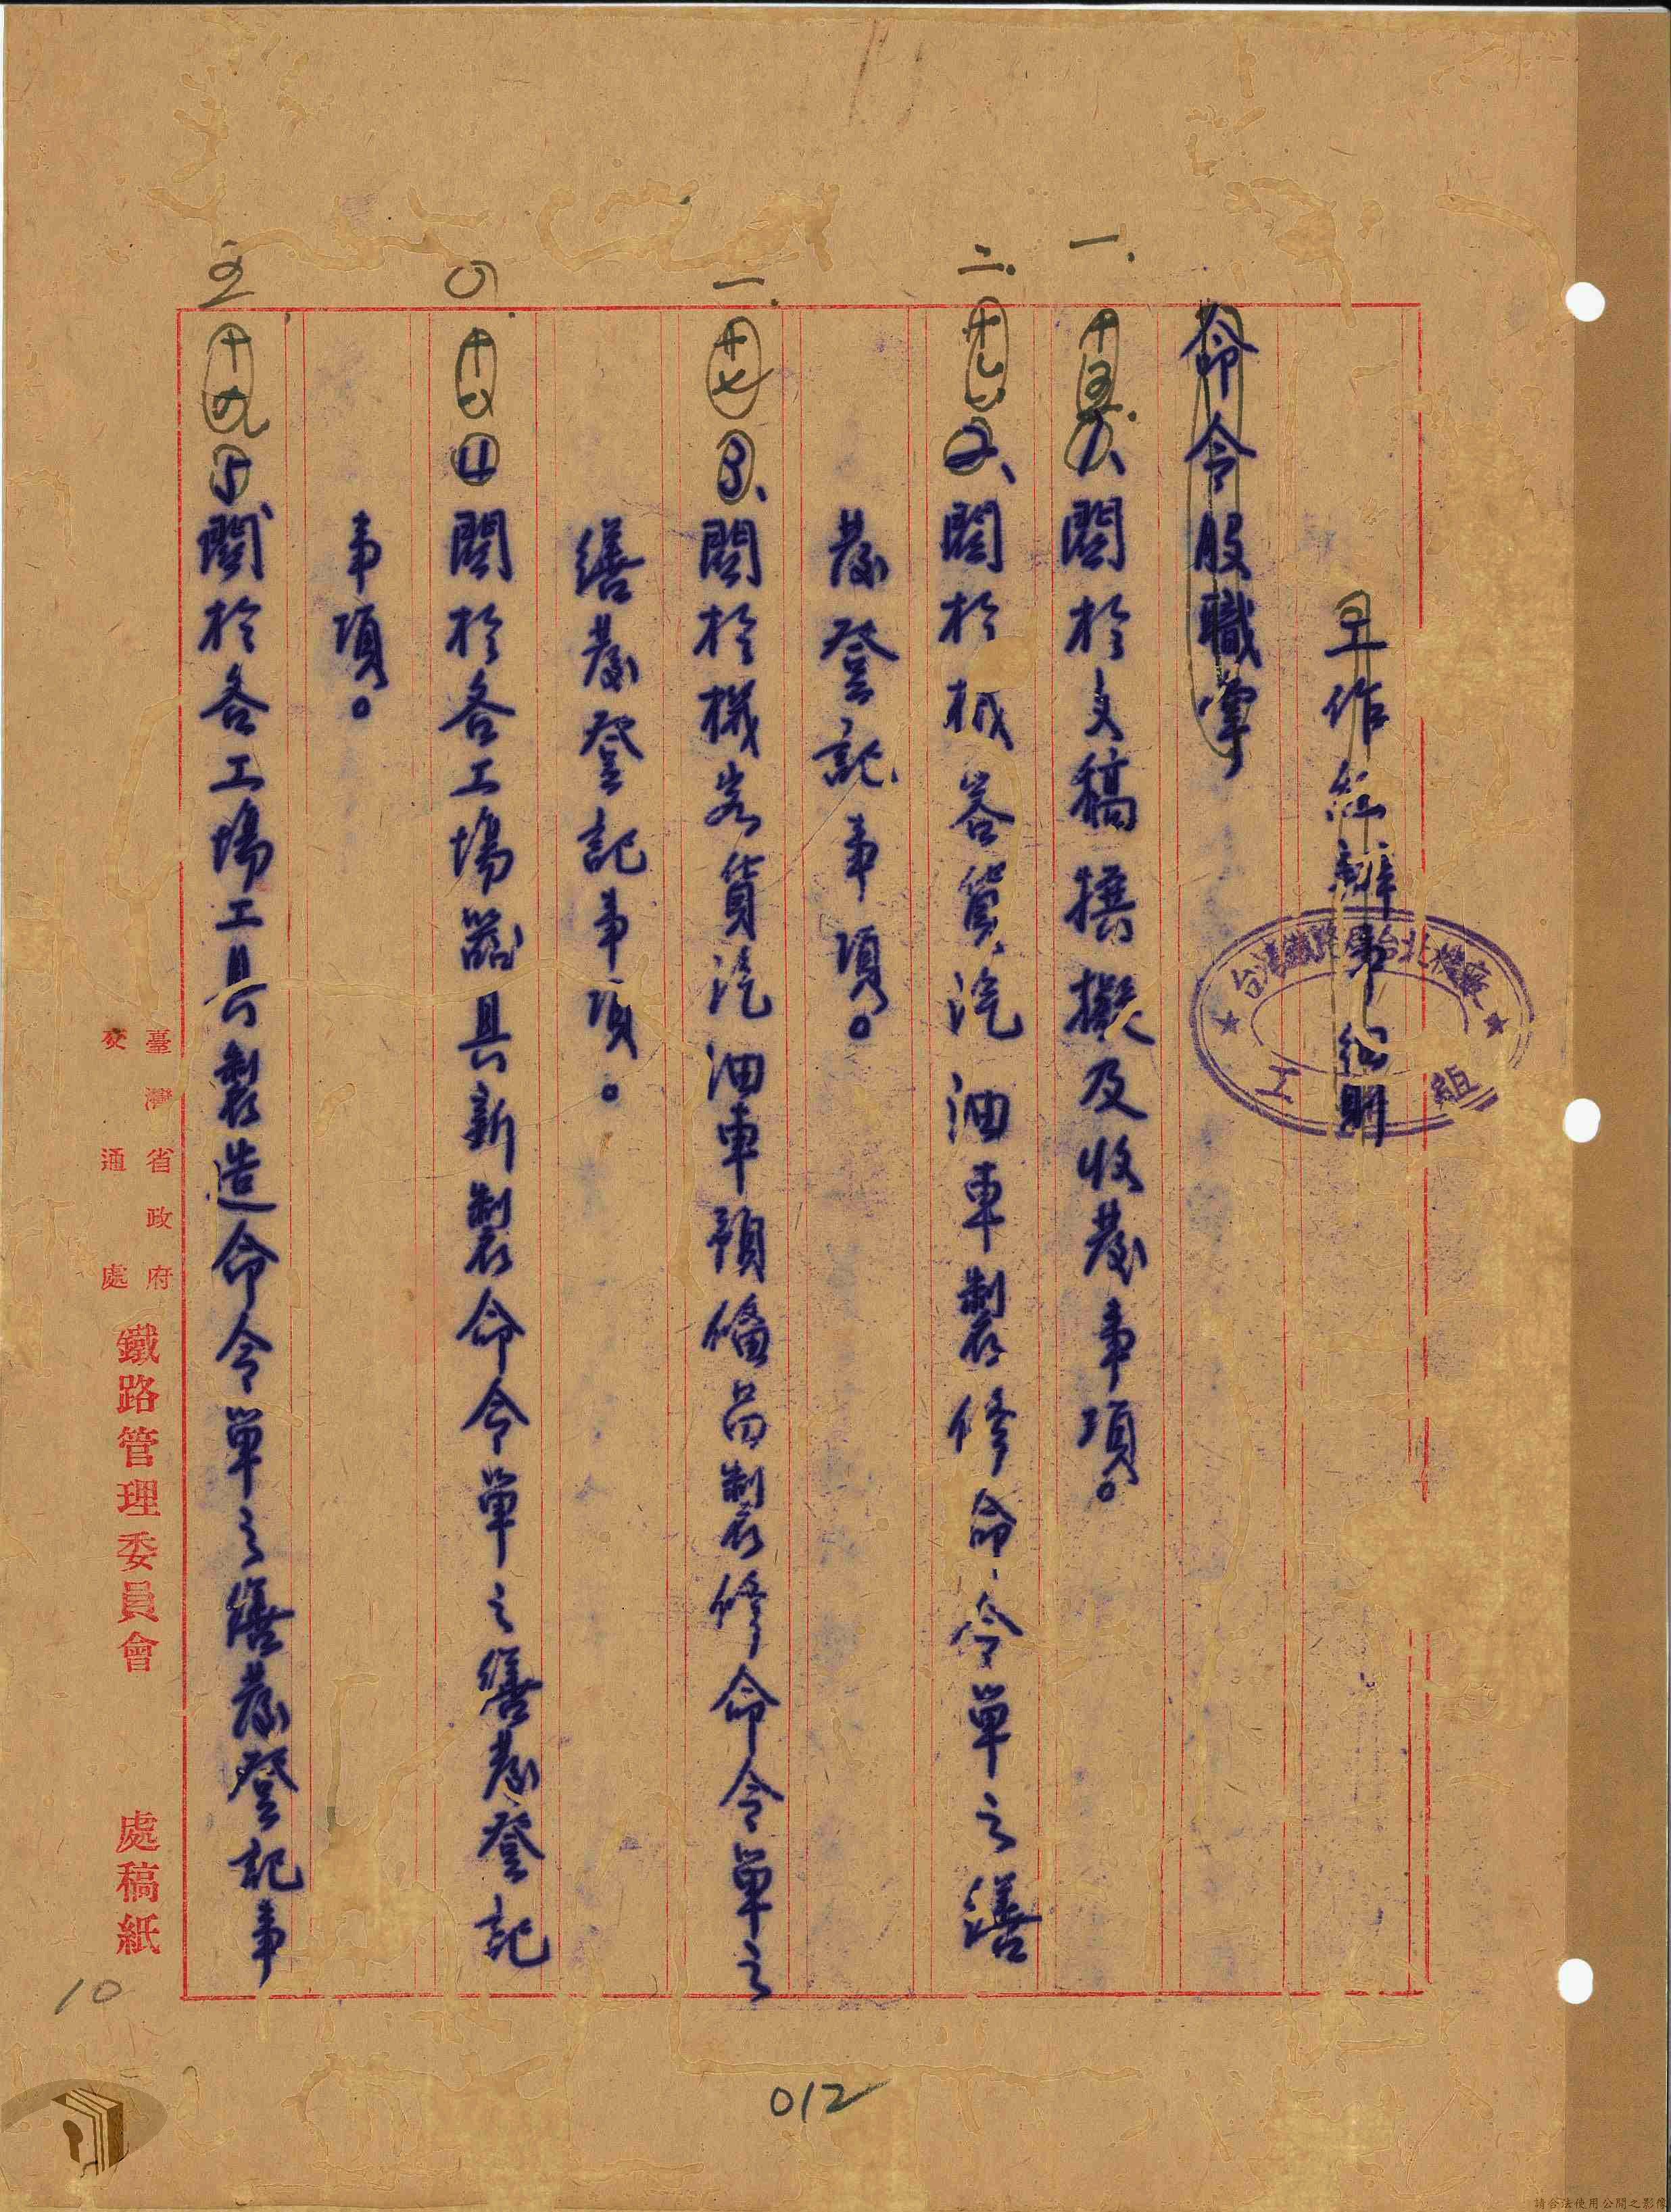 工作組辦事細則
台灣鐵路局台北機廠
工 組
命令股職掌
一.
十五.
1、關於文稿撰擬及收發事項。
二.
2、關於械客貨汽油車製修命令單之繕
發登記事項。
十七
3、關於機客貨汽油車預備品製修命令單之
繕發登記事項。
十八
4 關於各工場器具新製命令單之繕發登記
事項。
十九
5 關於各工場工具製造命令單之繕發登記事
臺灣省政府
交通處
鐵路管理委員會 處稿紙
10
012
請合法使用公開之影像